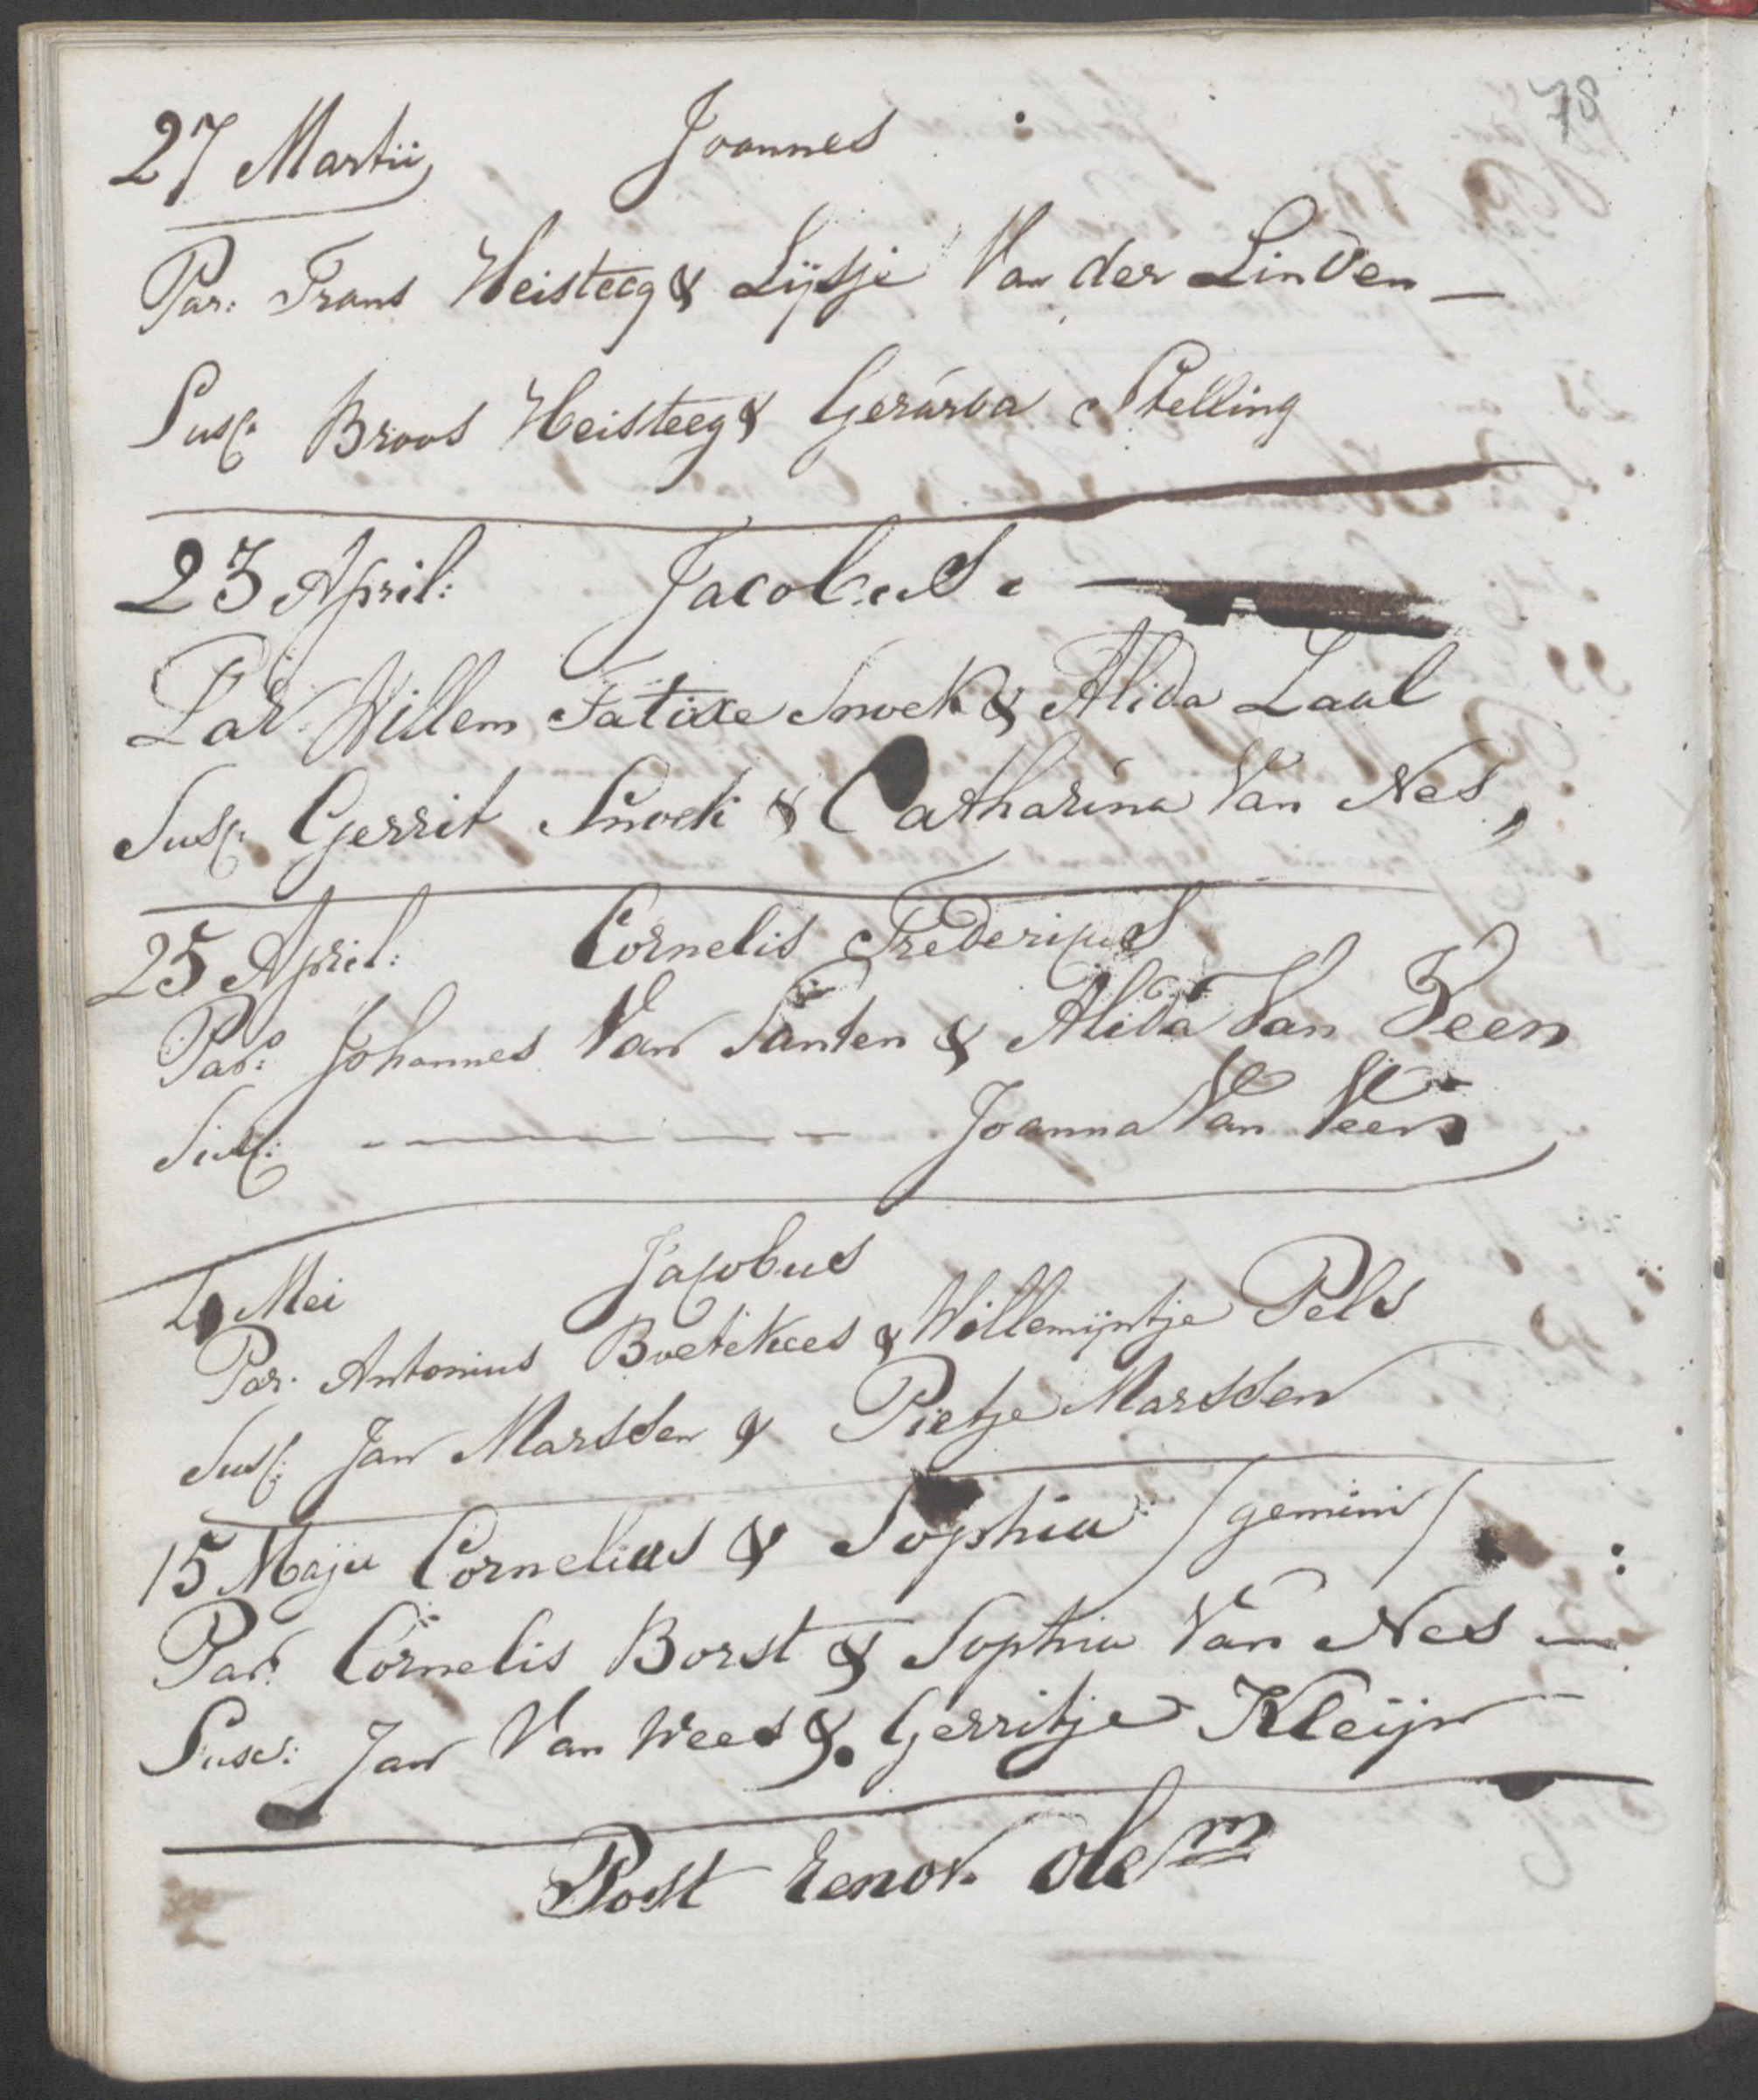 78
27 Martii Joannes
Par: Frans Heisteeg & Lijsje Van der Linden
Susc. Broos Heisteeg & Gerarda Stelling
23 April: Jacobus.
Par. Willem Snoek & Alida Laul
Susc. Gerrit Snoek & Catharina Van Nes,
25 April: Cornelis Fredericus
Par: Johannes Van Santen & Alida Van Veen
Susc: Joanna Van Veen
Mei Jacobus
Par. Antonius Boetekees & Willemijntje Pels
Susc: Jan Marssen & Pietje Marssen
15 Maju Cornelius & Sophia /gemini/
Par. Cornelis Borst & Sophia Van Nes
Susc: Jan Van Wees &. Gerritje Kleijn
Post renov. ole m